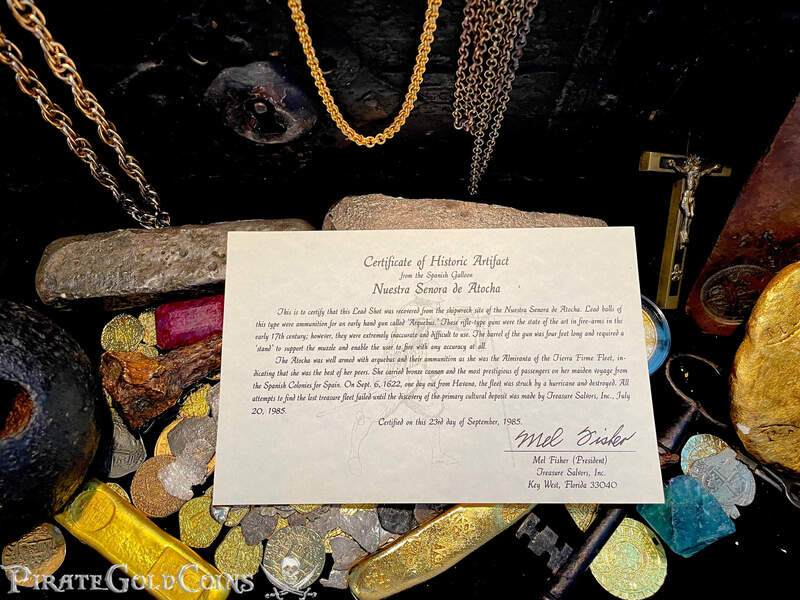 Certificate of Historic Artifact
from the Spanish Galleon
Nuestra Senora de Atocha
This is to certify that this Lead Shot was recovered from the shipwreck site of the Nuestra Senora de Atocha. Lead balls of
this type were ammunition for an early hand gun called "Arquebus." These rifle-type guns were the state of the art in fire-arms in the
early 17th century; however, they were extremely inaccurate and difficult to use. The barrel of the gun was four foot long and required a
"stand" to support the muzzle and enable the user to fire with any accuracy at all.
The Atocha was well armed with arquebus and their ammunition as she was the Almiranta of the Tierra Firme Fleet, in-
dicating that she was the best of her peers. She carried bronze cannon and the most prestigious of passengers on her maiden voyage from
the Spanish Colonies for Spain. On Sept. 6, 1622, one day out from Havana, the fleet was struck by a hurricane and destroyed. All
attempts to find the lost treasure fleet failed until the discovery of the primary cultural deposit was made by Treasure Salvors, Inc., July
20, 1985.
Certified on this 23rd day of September, 1985.
Mel Fisher
Mel Fisher (President)
Treasure Salvors, Inc.
Key West, Florida 33040
PirateGoldCoins